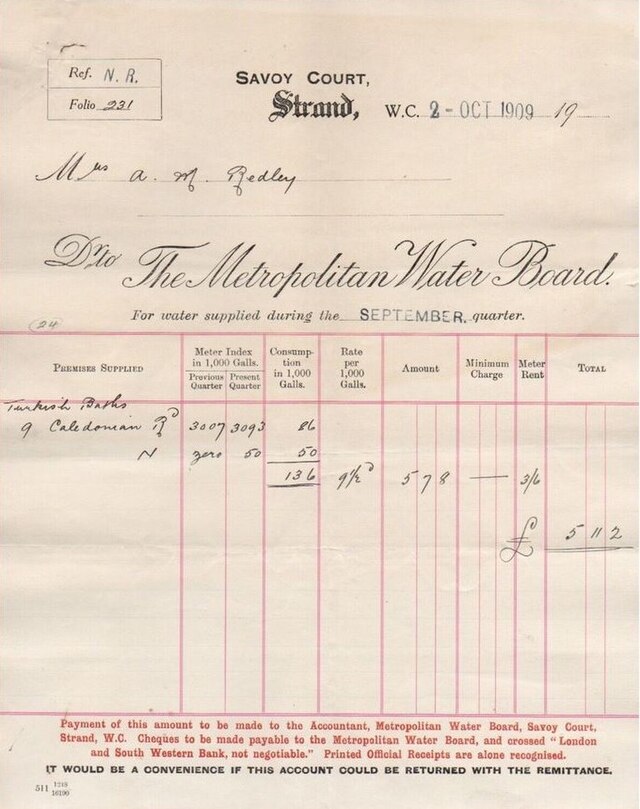 Ref. N. R.
Folio 231
SAVOY COURT,
Strand, W.C. 2 - OCT 1909 19
Mrs A. M. Redley
Dr. to The Metropolitan Water Board.
For water supplied during the SEPTEMBER. quarter.
(24
PREMISES SUPPLIED
Meter Index in 1,000 Galls.
Previous Quarter
Present Quarter
Consumption in 1,000 Galls.
Rate per 1,000 Galls.
Amount
Minimum Charge
Meter Rent
TOTAL
Turkish Baths
9 Caledonian Rd 3007 3093 86
N zero 50 50
136 9½d 5 7 8 — 3/6
£ 5 11 2
Payment of this amount to be made to the Accountant, Metropolitan Water Board, Savoy Court,
Strand, W.C. Cheques to be made payable to the Metropolitan Water Board, and crossed "London
and South Western Bank, not negotiable." Printed Official Receipts are alone recognised.
IT WOULD BE A CONVENIENCE IF THIS ACCOUNT COULD BE RETURNED WITH THE REMITTANCE.
511 1248 16190